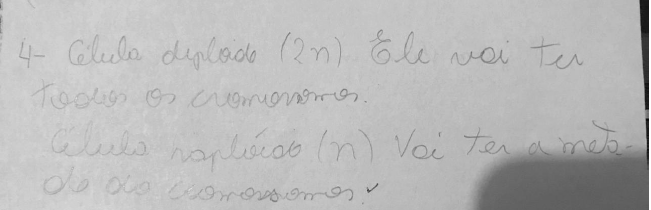 4- Célula diploide (2n) Ele vai ter
todos os cromossomos.
Célula haploide (n) Vai ter a meta-
de dos cromossomos.